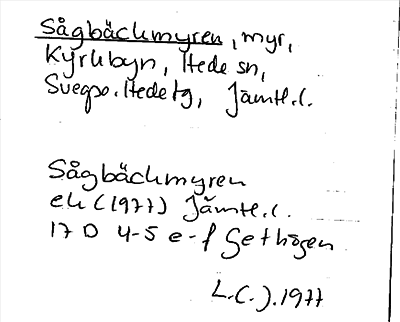 Sågbäckmyren, myr,
Kyrkbyn, Hede sn,
Svegso. Hede tg, Jämtl.l.
Sågbäckmyren
ek (1977) Jämtl.l.
17 D 4-5 e-f Gethögen
L.C.J. 1977